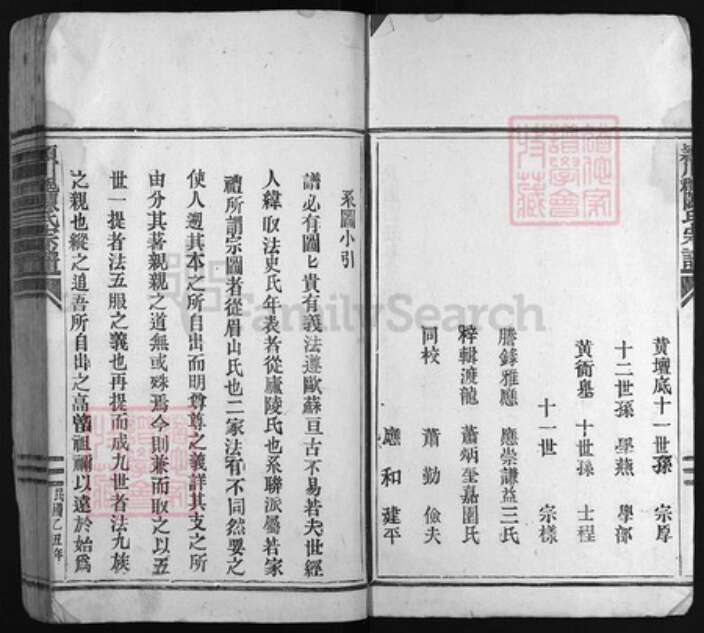 黃壇底十一世孫 宗厚
十二世孫 學燕 學部
黃衙墾 十世孫 士程
十一世 宗樣
謄錄雅應 應崇謙益三氏
梓輯渡龍 蕭炳奎嘉園氏
同校 蕭勤儉夫
應和建平
系圖小引
譜必有圖匕貴有義法遵歐蘇亘古不易若夫世經
人緯取法史氏年表者從廬陵氏也系聯派屬若家
禮所謂宗圖者從眉山氏也二家法有不同然要之
使人遡其本之所自出而明尊尊之義詳其支之所
由分其著親親之道無或殊焉今則兼而取之以五
世一提者法五服之義也再提而成九世者法九族
之親也縱之道吾所自出之高曾祖禰以遠於始為
民國乙丑年
FamilySearch